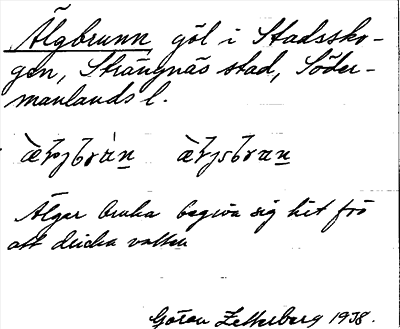 Älgbrunn göl i Stadssko-
gen, Strängnäs stad, Söder-
manlands l.
Älgar bruka begiva sig hit för
att dricka vatten
Götan Zetterberg 1938.